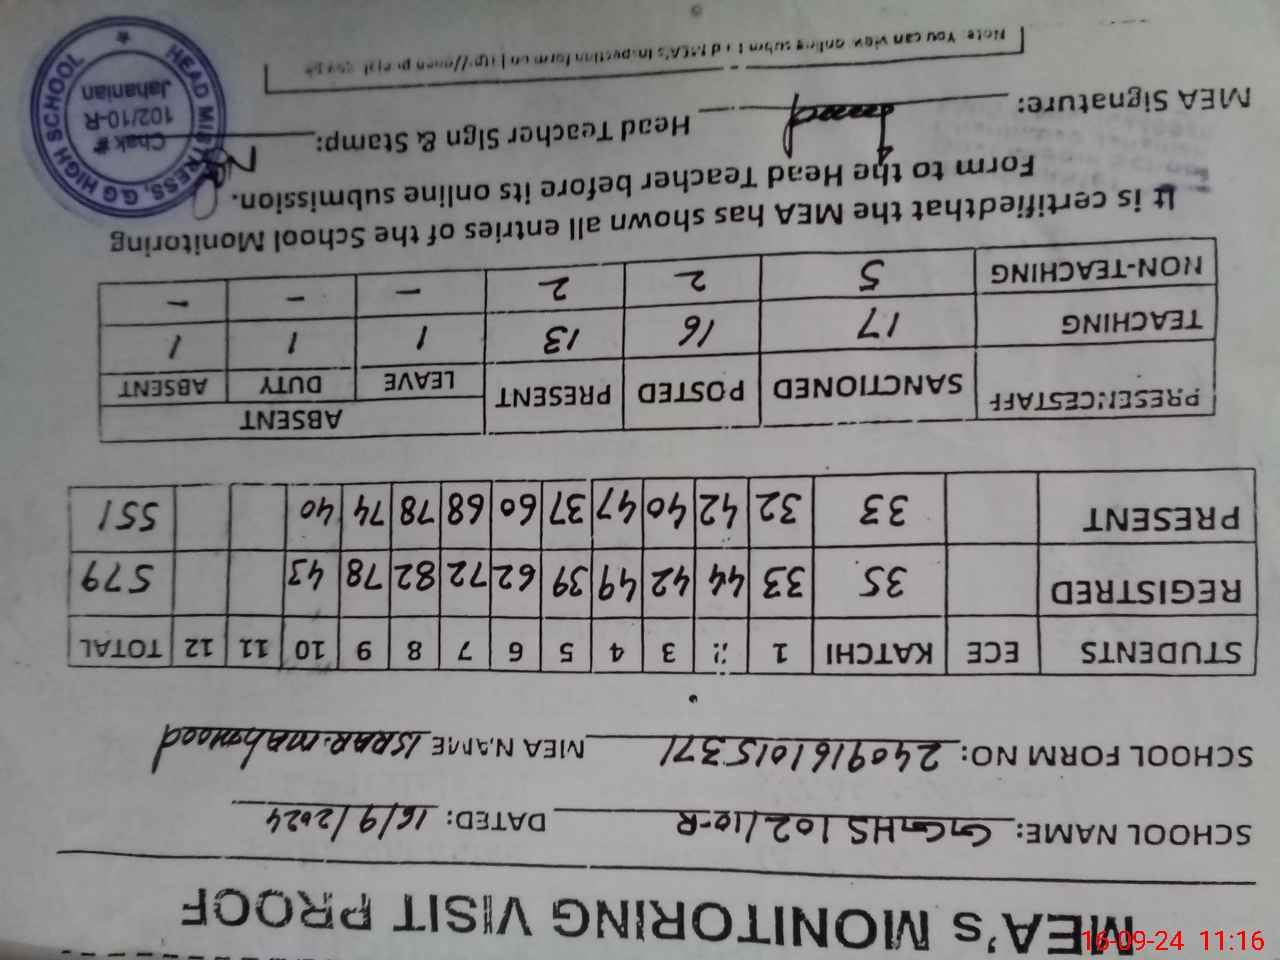 MEA's MONITORING VISIT PROOF
SCHOOL NAME: GGHS 102/10-R DATED: 16/9/2024
SCHOOL FORM NO: 2409161015371 MEA NAME ISRAR Mahmood
STUDENTS ECE KATCHI 1 2 3 4 5 6 7 8 9 10 11 12 TOTAL
REGISTRED 35 33 44 42 49 39 62 72 82 78 43 579
PRESENT 33 32 42 40 47 37 60 68 78 74 40 551
PRESENCESTAFF SANCTIONED POSTED PRESENT ABSENT
LEAVE DUTY ABSENT
TEACHING 17 16 13 1 1 1
NON-TEACHING 5 2 2 - - -
It is certifiedthat the MEA has shown all entries of the School Monitoring
Form to the Head Teacher before its online submission.
MEA Signature: Head Teacher Sign & Stamp:
HEAD MISTRESS, G.G HIGH SCHOOL
Chak #
102/10-R
Jahanian
Note: You can view online submitted MEA's Inspection form on
16-09-24 11:16